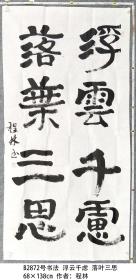 浮雲千慮
落葉三思
程林书
82872号书法 浮云千虑 落叶三思
68×138cm 作者：程林